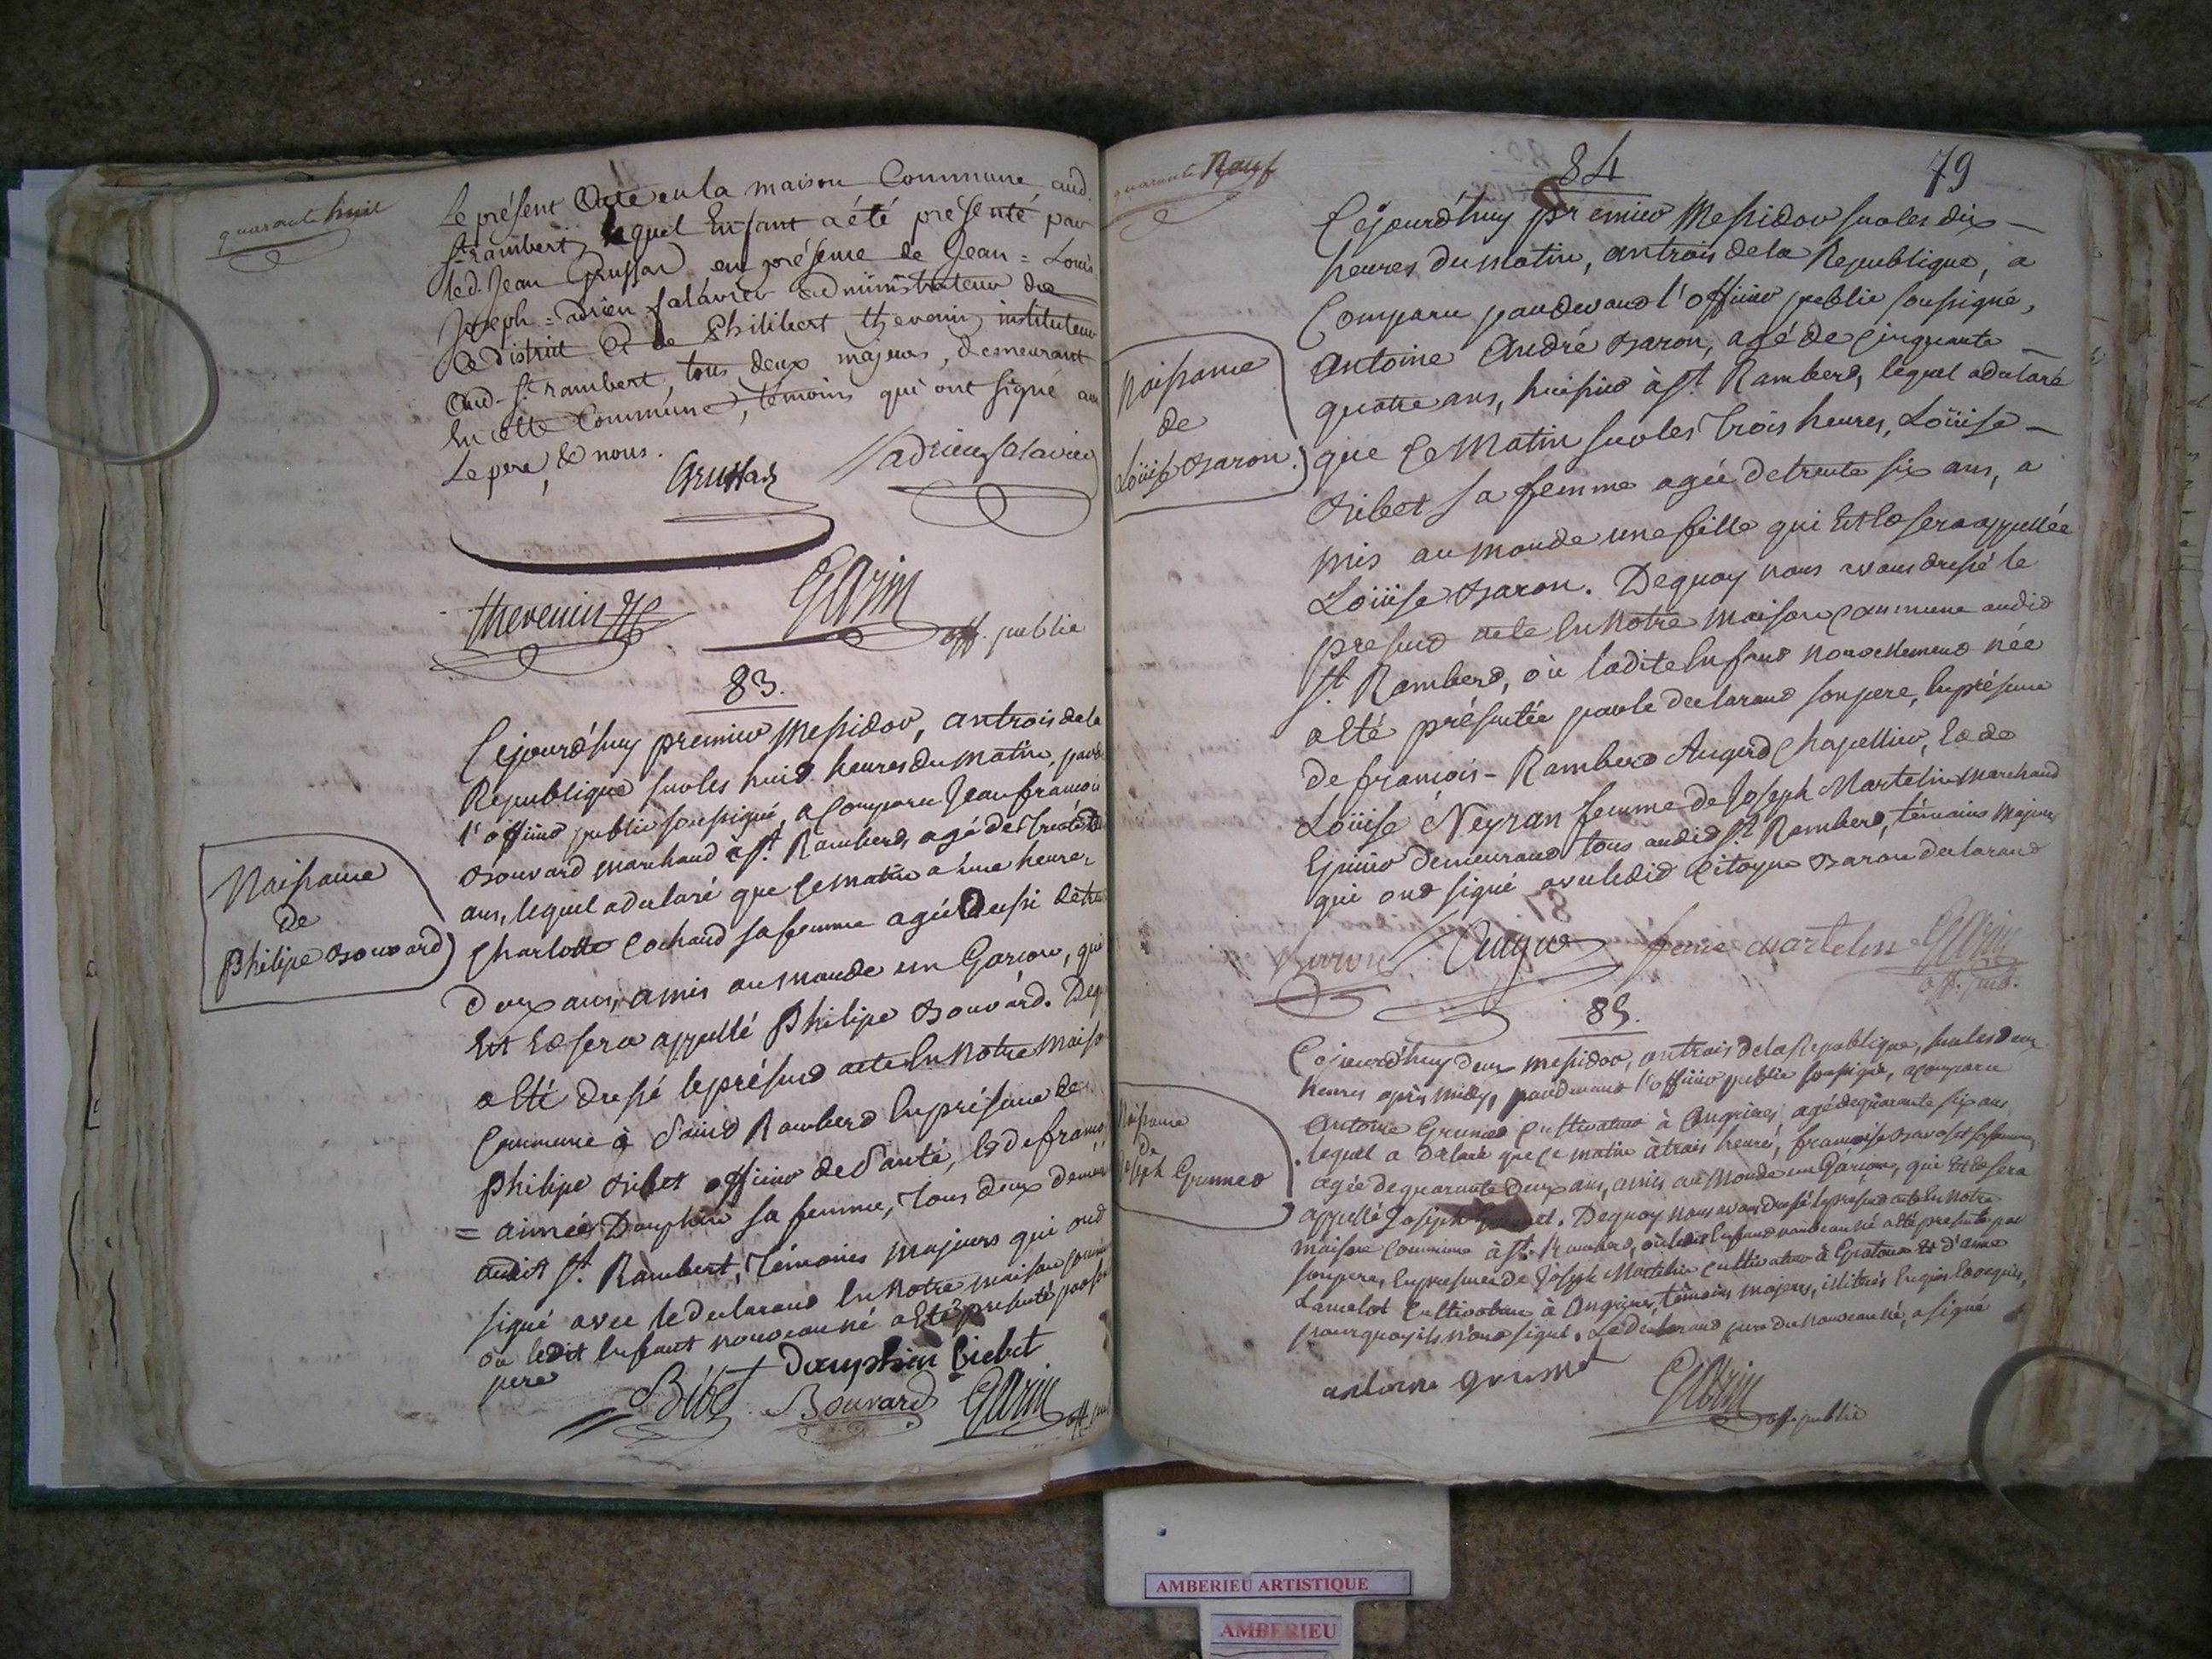 quarante huit
Le présent Acte en la maison Commune aud.
St rambert, lequel Enfant a été présenté par
led. Jean Grussar en présence de Jean = Louis
Joseph = adrien falavier administrateur du
district Et de Philibert thevenin instituteur
Aud. St rambert, tous deux majeurs, demeurant
En cette Commune, témoins qui ont signé
Le pere, & nous.
adrien falavier
thevenin
GARIN
off. public
83.
Cejourd'huy premier Messidor, an trois de la
Republique sur les huit heures du matin, pard
l'officier public soussigné, a Comparu Jean francois
Bouvard marchand à St. Rambert, agé de trente
ans, lequel a declaré que ce matin a une heure,
Charlotte Cochand sa femme agée aussi de tre
Deux ans, a mis au monde un Garcon, qui
Est Et sera appellé Philipe Bouvard. Dequ
a Eté dressé le présent acte En Notre Maiso
Commune à Saint Rambert En présence de
Philipe Bibet officier de Santé, Et de franc
= aimée Dauphin sa femme, Tous deux demeu
audit St. Rambert, Témoins majeurs qui ont
signé avec le declarant En Notre maison comm
ou ledit Enfant nouveau né a Eté présenté par son
pere
Naissance
de
Philipe Bouvard
Dauphin Biebet
Bibet
Bouvard
GARIN
quarante Neuf
84
79
Cejourd'huy premier Messidor sur les dix -
heures du matin, an trois de la Republique, a
Comparu pardevant l'officier public soussigné,
Antoine André Baron, agé de Cinquante
quatre ans, huissier à St. Rambert, lequel a declaré
que Ce Matin sur les Trois heures, Loüise -
Bibet sa femme agée de trente six ans, a
mis au monde une fille qui Est Et sera appellée
Loüise Baron. Dequoy nous avons dressé le
présent acte En Notre Maison Commune audit
St. Rambert, où ladite Enfant nouvellement née
a Eté présentée par le declarant son pere, En présence
de françois - Rambert Augerd Chapellier, Et de
Loüise Neyran femme de Joseph Martelin marchand
Epicier demeurant tous audit St. Rambert, témoins Majeurs
qui ont signé avec ledit Citoyen Baron declarant
Naissance
de
Loüise Baron.
Baron
femme Martelin
GARIN
off. pub.
85.
Cejourd'huy deux Messidor, an trois de la Republique, sur les deux
heures après midy, pardevant l'officier public soussigné, a comparu
Antoine Grumet Cultivateur à Angrieres, agé de quarante six ans
lequel a declaré que ce matin à trois heures, francoise sa femme,
agée de quarante Deux ans, a mis au Monde un Garçon, qui Est Et sera
appellé Joseph Grumet. Dequoy nous avons dressé le présent acte En Notre
maison Commune à St. Rambert, où ledit Enfant nouveau né a Eté présenté par
son pere, En presence de Joseph Martelin cultivateur à Et d'anne
Lancelot Cultivateur à Angrieres, témoins majeurs, illiterés Enquis Et requis,
pourquoy ils n'ont signé. Le Declarant pere du nouveau né, a signé
Naissance
de
Joseph Grumet
antoine grumet
GARIN
off. public
AMBERIEU ARTISTIQUE
AMBERIEU